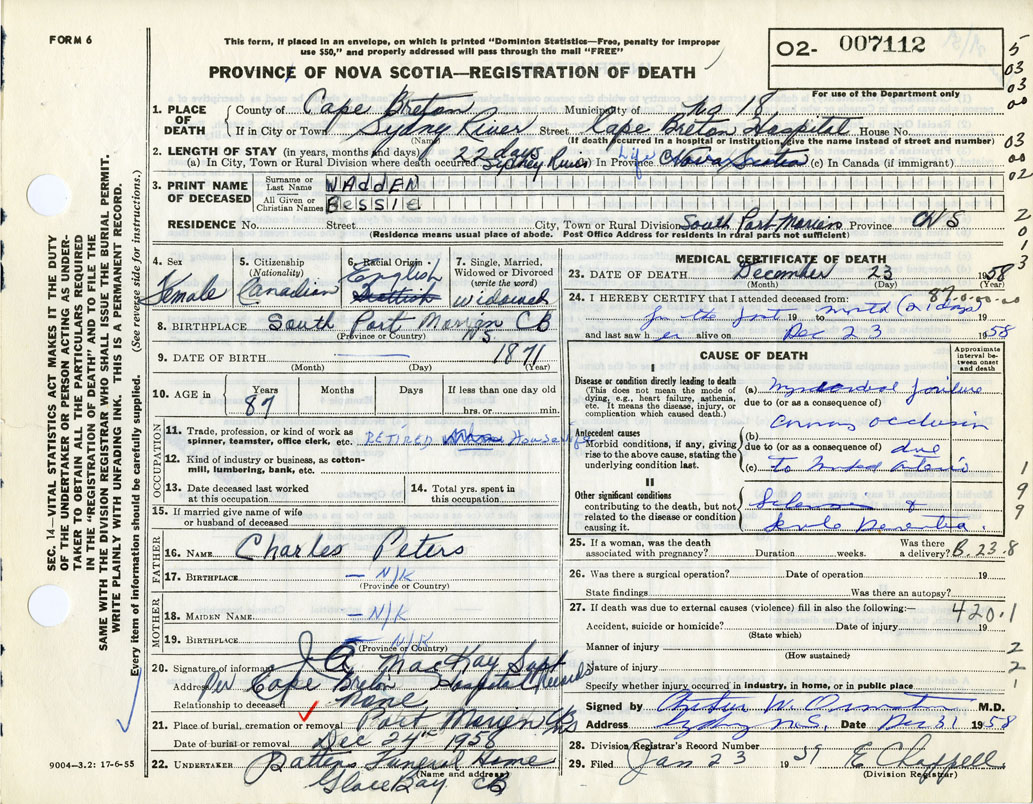 FORM 6
This form, if placed in an envelope, on which is printed "Dominion Statistics—Free, penalty for improper
use $50," and properly addressed will pass through the mail "FREE"
PROVINCE OF NOVA SCOTIA—REGISTRATION OF DEATH
02- 007112
For use of the Department only
1. PLACE OF DEATH
County of Cape Breton Municipality of No 18
If in City or Town Sydney River Street Cape Breton Hospital House No.
(Name) (If death occurred in a hospital or institution, give the name instead of street and number)
2. LENGTH OF STAY (in years, months and days) 22 days
(a) In City, Town or Rural Division where death occurred Sydney River (b) In Province Life Nova Scotia (c) In Canada (if immigrant)
3. PRINT NAME OF DECEASED
Surname or Last Name WADDEN
All Given or Christian Names BESSIE
RESIDENCE No. Street City, Town or Rural Division South Port Morien Province NS
(Residence means usual place of abode. Post Office Address for residents in rural parts not sufficient)
4. Sex Female
5. Citizenship (Nationality) Canadian
6. Racial Origin English Scottish
7. Single, Married, Widowed or Divorced (write the word) widowed
8. BIRTHPLACE South Port Morien CB N.S.
(Province or Country)
9. DATE OF BIRTH 1871
(Month) (Day) (Year)
10. AGE in Years 87 Months Days If less than one day old hrs. or min.
OCCUPATION
11. Trade, profession, or kind of work as spinner, teamster, office clerk, etc. RETIRED Housewife
12. Kind of industry or business, as cotton-mill, lumbering, bank, etc.
13. Date deceased last worked at this occupation
14. Total yrs. spent in this occupation
15. If married give name of wife or husband of deceased
FATHER
16. NAME Charles Peters
17. BIRTHPLACE — N/K
(Province or Country)
MOTHER
18. MAIDEN NAME — N/K
19. BIRTHPLACE — N/K
(Province or Country)
20. Signature of informant J A MacKay Supt
Address Per Cape Breton Hospital Records
Relationship to deceased None
21. Place of burial, cremation or removal Port Morien CB NS
Date of burial or removal Dec 24th 1958
22. UNDERTAKER Battens Funeral Home
(Name and address)
Glace Bay CB
MEDICAL CERTIFICATE OF DEATH
23. DATE OF DEATH December 23 1958
(Month) (Day) (Year)
24. I HEREBY CERTIFY that I attended deceased from: 87-0-00-00
for the past 19 to month (21 days) 19
and last saw her alive on Dec 23 1958
CAUSE OF DEATH
Approximate interval between onset and death
I
Disease or condition directly leading to death
(This does not mean the mode of dying, e.g., heart failure, asthenia, etc. It means the disease, injury, or complication which caused death.)
(a) myocardial failure
due to (or as a consequence of)
Antecedent causes
Morbid conditions, if any, giving rise to the above cause, stating the underlying condition last.
(b) coronary occlusion
due to (or as a consequence of) due
(c) to marked arterio
II
Other significant conditions
contributing to the death, but not related to the disease or condition causing it.
Sclerosis &
Senile Dementia.
25. If a woman, was the death associated with pregnancy? Duration weeks. Was there a delivery? B.23.8
26. Was there a surgical operation? Date of operation 19
State findings Was there an autopsy?
27. If death was due to external causes (violence) fill in also the following:— 420.1
Accident, suicide or homicide? Date of injury 19
(State which)
Manner of injury
(How sustained)
Nature of injury
Specify whether injury occurred in industry, in home, or in public place
Signed by M.D.
Address Sydney N.S. Date Dec 31 1958
28. Division Registrar's Record Number
29. Filed Jan 23 1959 E Chappell
(Division Registrar)
SEC. 14—VITAL STATISTICS ACT MAKES IT THE DUTY
OF THE UNDERTAKER OR PERSON ACTING AS UNDER-
TAKER TO OBTAIN ALL THE PARTICULARS REQUIRED
IN THE "REGISTRATION OF DEATH" AND TO FILE THE
SAME WITH THE DIVISION REGISTRAR WHO SHALL ISSUE THE BURIAL PERMIT.
WRITE PLAINLY WITH UNFADING INK. THIS IS A PERMANENT RECORD.
Every item of information should be carefully supplied. (See reverse side for instructions.)
9004—3.2: 17-6-55
5
03
03
00
03
00
02
2
0
1
3
1
9
9
2
2
1